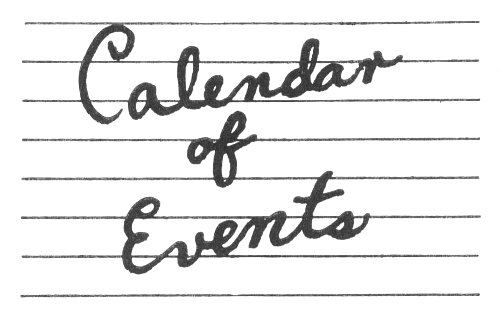 Calendar
of
Events